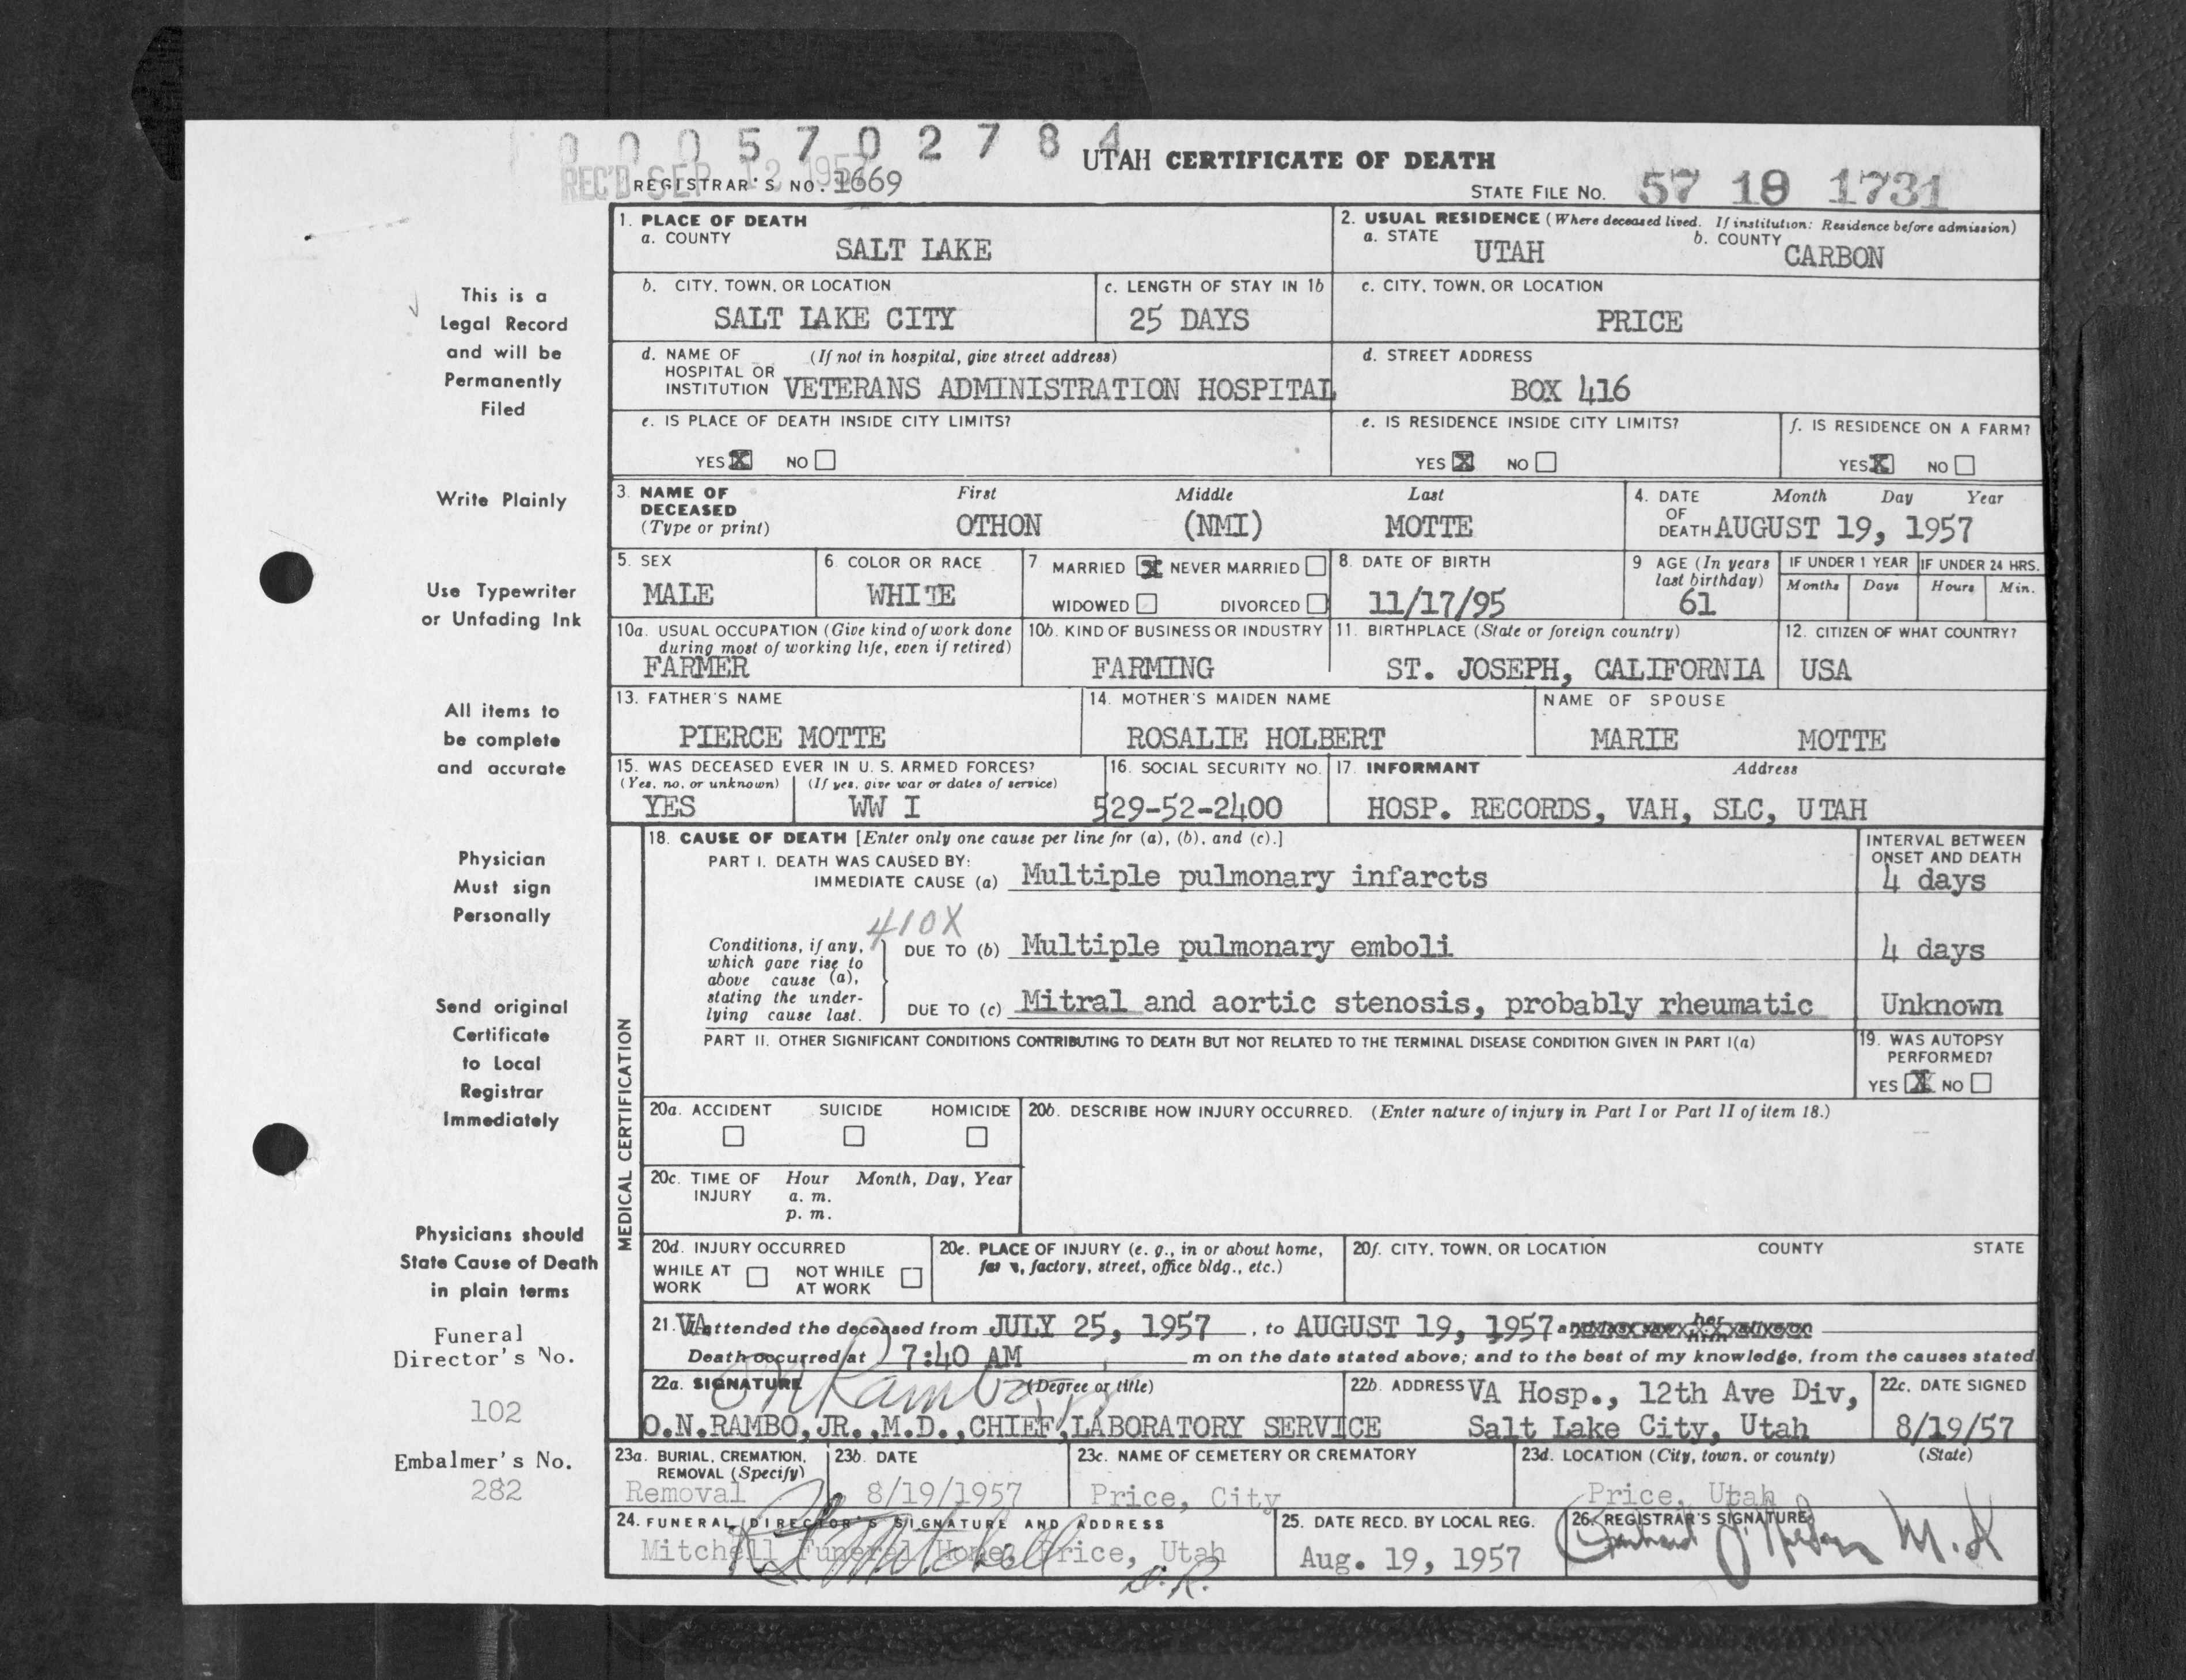 0005702784
REC'D SEP 12 1957
UTAH CERTIFICATE OF DEATH
REGISTRAR'S NO. 1669
STATE FILE NO. 57 18 1731
This is a
Legal Record
and will be
Permanently
Filed
Write Plainly
Use Typewriter
or Unfading Ink
All items to
be complete
and accurate
Physician
Must sign
Personally
Send original
Certificate
to Local
Registrar
Immediately
Physicians should
State Cause of Death
in plain terms
Funeral
Director's No.
102
Embalmer's No.
282
1. PLACE OF DEATH
a. COUNTY
SALT LAKE
2. USUAL RESIDENCE (Where deceased lived. If institution: Residence before admission)
a. STATE
UTAH
b. COUNTY
CARBON
b. CITY, TOWN, OR LOCATION
SALT LAKE CITY
c. LENGTH OF STAY IN 1b
25 DAYS
c. CITY, TOWN, OR LOCATION
PRICE
d. NAME OF HOSPITAL OR INSTITUTION
(If not in hospital, give street address)
VETERANS ADMINISTRATION HOSPITAL
d. STREET ADDRESS
BOX 416
e. IS PLACE OF DEATH INSIDE CITY LIMITS?
YES X NO
e. IS RESIDENCE INSIDE CITY LIMITS?
YES X NO
f. IS RESIDENCE ON A FARM?
YES X NO
3. NAME OF
DECEASED
(Type or print)
First Middle Last
OTHON (NMI) MOTTE
4. DATE
OF
DEATH
Month Day Year
AUGUST 19, 1957
5. SEX
MALE
6. COLOR OR RACE
WHITE
7. MARRIED X NEVER MARRIED
WIDOWED DIVORCED
8. DATE OF BIRTH
11/17/95
9 AGE (In years
last birthday)
61
IF UNDER 1 YEAR
Months Days
IF UNDER 24 HRS.
Hours Min.
10a. USUAL OCCUPATION (Give kind of work done
during most of working life, even if retired)
FARMER
10b. KIND OF BUSINESS OR INDUSTRY
FARMING
11. BIRTHPLACE (State or foreign country)
ST. JOSEPH, CALIFORNIA
12. CITIZEN OF WHAT COUNTRY?
USA
13. FATHER'S NAME
PIERCE MOTTE
14. MOTHER'S MAIDEN NAME
ROSALIE HOLBERT
NAME OF SPOUSE
MARIE MOTTE
15. WAS DECEASED EVER IN U. S. ARMED FORCES?
(Yes, no, or unknown) (If yes, give war or dates of service)
YES WW I
16. SOCIAL SECURITY NO.
529-52-2400
17. INFORMANT Address
HOSP. RECORDS, VAH, SLC, UTAH
MEDICAL CERTIFICATION
18. CAUSE OF DEATH [Enter only one cause per line for (a), (b), and (c).]
INTERVAL BETWEEN
ONSET AND DEATH
PART I. DEATH WAS CAUSED BY:
IMMEDIATE CAUSE (a) Multiple pulmonary infarcts 4 days
410X
Conditions, if any,
which gave rise to
above cause (a),
stating the under-
lying cause last.
DUE TO (b) Multiple pulmonary emboli 4 days
DUE TO (c) Mitral and aortic stenosis, probably rheumatic Unknown
PART II. OTHER SIGNIFICANT CONDITIONS CONTRIBUTING TO DEATH BUT NOT RELATED TO THE TERMINAL DISEASE CONDITION GIVEN IN PART I(a)
19. WAS AUTOPSY
PERFORMED?
YES X NO
20a. ACCIDENT SUICIDE HOMICIDE
20b. DESCRIBE HOW INJURY OCCURRED. (Enter nature of injury in Part I or Part II of item 18.)
20c. TIME OF
INJURY
Hour Month, Day, Year
a. m.
p. m.
20d. INJURY OCCURRED
WHILE AT
WORK
NOT WHILE
AT WORK
20e. PLACE OF INJURY (e. g., in or about home,
factory, street, office bldg., etc.)
20f. CITY, TOWN, OR LOCATION COUNTY STATE
21. VA attended the deceased from JULY 25, 1957, to AUGUST 19, 1957
Death occurred at 7:40 AM m on the date stated above; and to the best of my knowledge, from the causes stated
22a. SIGNATURE (Degree or title)
ON Rambo Jr
O.N.RAMBO,JR.,M.D.,CHIEF,LABORATORY SERVICE
22b. ADDRESS VA Hosp., 12th Ave Div,
Salt Lake City, Utah
22c. DATE SIGNED
8/19/57
23a. BURIAL, CREMATION,
REMOVAL (Specify)
Removal
23b. DATE
8/19/1957
23c. NAME OF CEMETERY OR CREMATORY
Price, City
23d. LOCATION (City, town, or county) (State)
Price, Utah
24. FUNERAL DIRECTOR'S SIGNATURE AND ADDRESS
Mitchell Funeral Home, Price, Utah
Mitchell
25. DATE RECD. BY LOCAL REG.
Aug. 19, 1957
26. REGISTRAR'S SIGNATURE